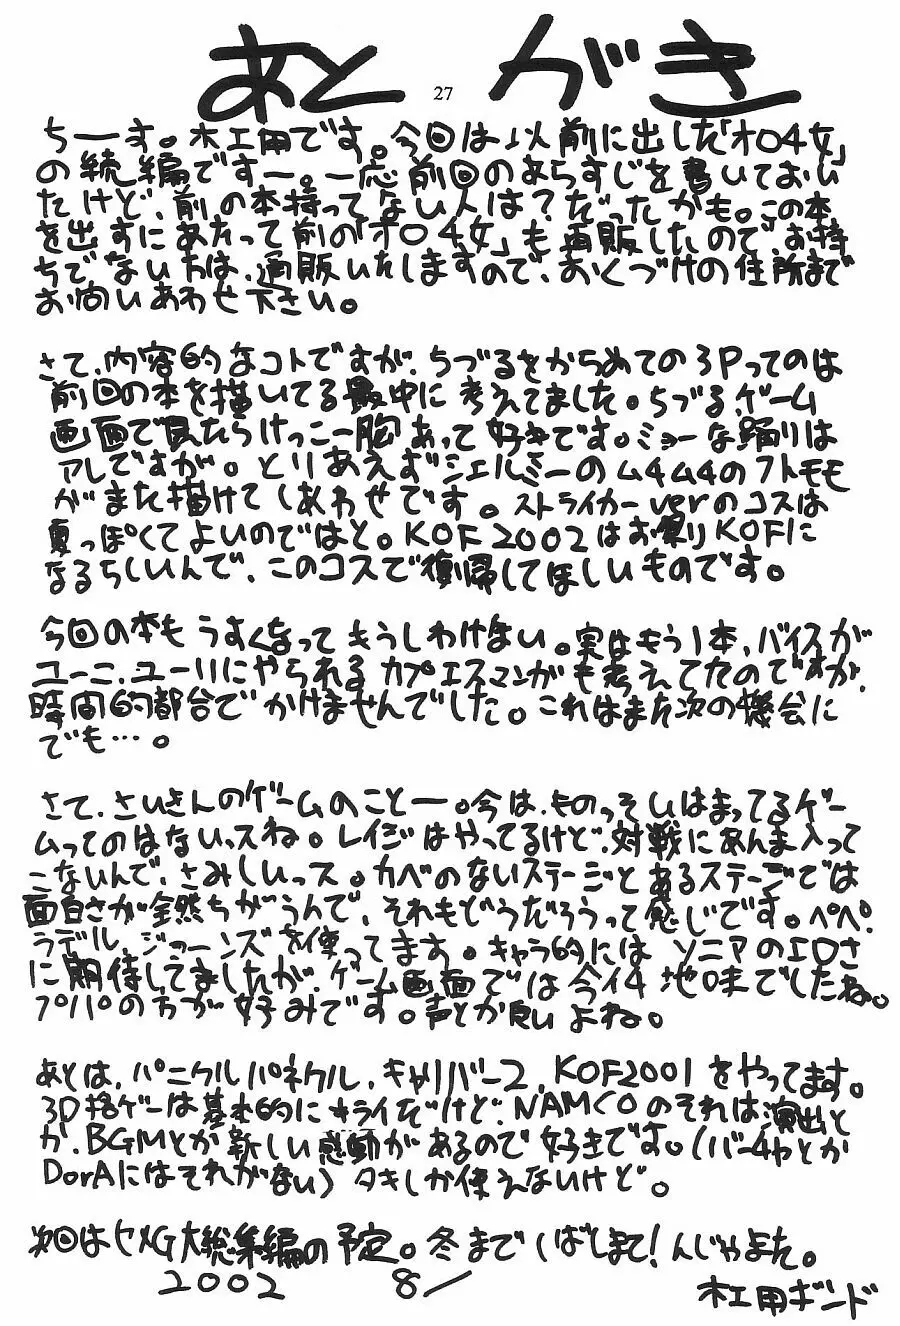 あとがき
27
ちーす。木工用です。今回は以前に出した「オロ4女」
の続編ですー。一応前回のあらすじを書いておい
たけど、前の本持ってない人は?だったかも。この本
を出すにあたって前の「オロ4女」も再販したので、お持
ちでない方は、通販いたしますので、おくづけの住所まで
お問いあわせ下さい。
さて、内容的なコトですが、ちづるをからめての3Pってのは
前回の本を描いてる最中に考えてました。ちづる、ゲーム
画面で見たらけっこー胸あって好きです。ミョーな踊りは
アレですが。とりあえずシェルミーのムチムチのフトモモ
がまた描けてしあわせです。ストライカーverのコスは
夏っぽくてよいのではと。KOF2002はお祭りKOFに
なるらしいんで、このコスで復帰してほしいものです。
今回の本もうすくなってもうしわけない。実はもう1本、バイスが
ユーニ、ユーリにやられるカプエスマンガも考えてたのですが、
時間的都合でかけませんでした。これはまた次の機会に
でも…。
さて、さいきんのゲームのことー。今は、ものっそいはまってるゲー
ムってのはないっスね。レイジはやってるけど、対戦にあんま入って
こないんで、さみしいっス。カベのないステージとあるステージでは
面白さが全然ちがうんで、それもどうだろうって感じです。ペペ、
ラデル、ジョーンズを使ってます。キャラ的にはソニアのエロさ
に期待してましたが、ゲーム画面では今イチ地味でしたね。
プルプルの方が好みです。声とか良いよね。
あとは、パニクルパネクル、キャリバー2、KOF2001をやってます。
3D格ゲーは基本的にキライだけど、NAMCOのそれは演出と
か、BGMとか新しい感動があるので好きです。(バーチャとか
DorAにはそれがない)タキしか使えないけど。
次回はヒメG大総集編の予定。冬までしばしまて!んじゃまた。
2002 8/
木工用ボンド